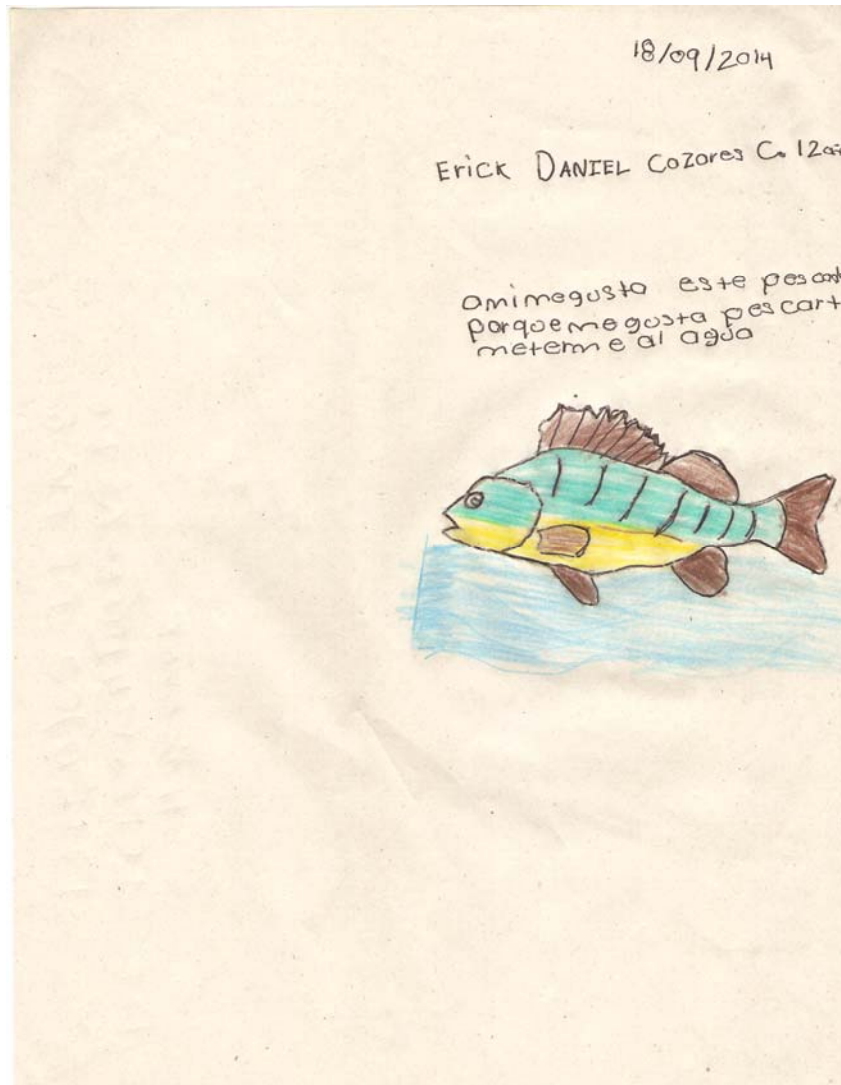 18/09/2014
Erick DANIEL Cozares C. 12
amimegusta este
porquemegusta
meterme al agua